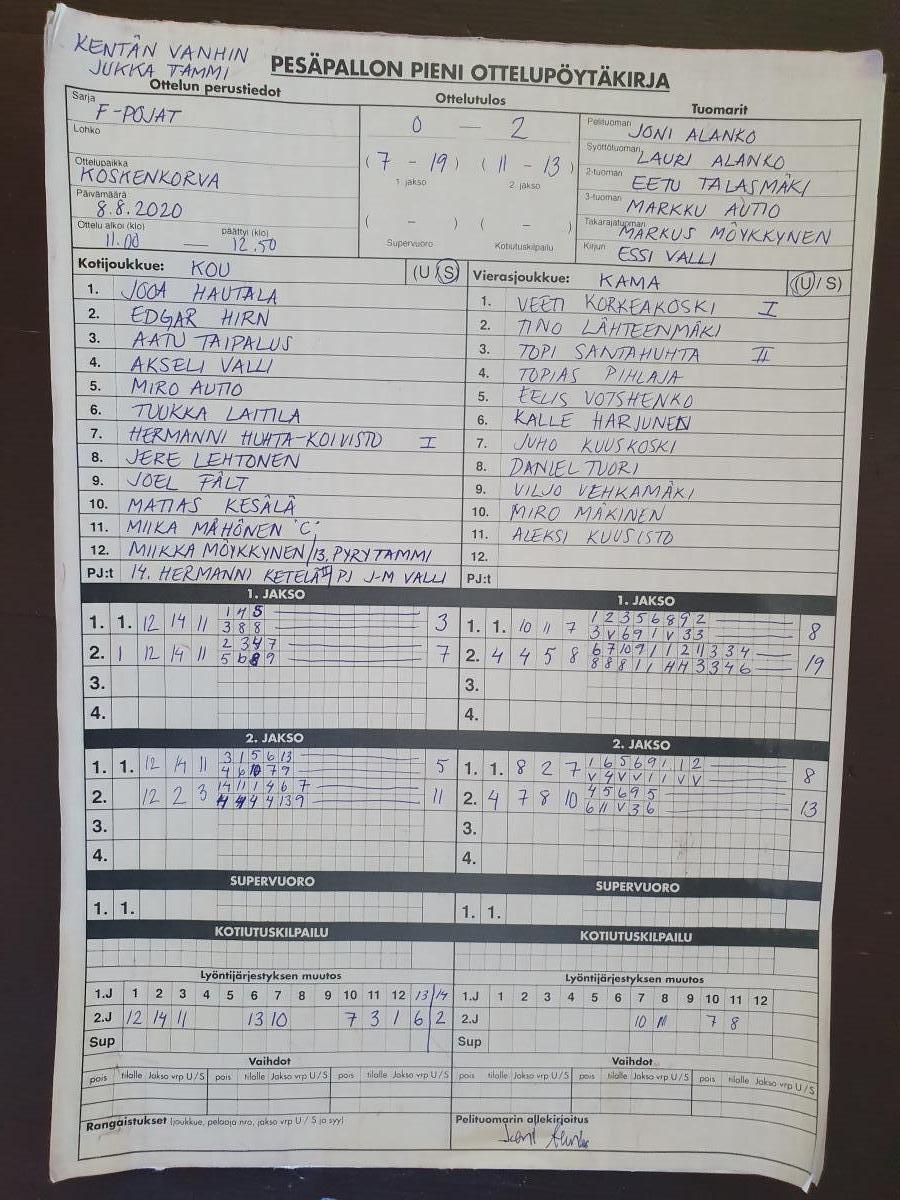 KENTÄN VANHIN
JUKKA TAMMI
PESÄPALLON PIENI OTTELUPÖYTÄKIRJA
Ottelun perustiedot
Sarja F-POJAT
Lohko
Ottelupaikka
KOSKENKORVA
Päivämäärä
8.8.2020
Ottelu alkoi (klo) päättyi (klo)
11.00 — 12.50
Ottelutulos
0 — 2
(7 - 19) (11 - 13)
1. jakso 2. jakso
( - ) ( - )
Supervuoro Kotiutuskilpailu
Tuomarit
Pelituomari JONI ALANKO
Syöttötuomari LAURI ALANKO
2-tuomari EETU TALASMÄKI
3-tuomari MARKKU AUTIO
Takarajatuomari MARKUS MÖYKKYNEN
Kirjuri ESSI VALLI
Kotijoukkue: KOU (U/S)
1. JOOA HAUTALA
2. EDGAR HIRN
3. AATU TAIPALUS
4. AKSELI VALLI
5. MIRO AUTIO
6. TUUKKA LAITILA
7. HERMANNI HUHTA-KOIVISTO I
8. JERE LEHTONEN
9. JOEL FÄLT
10. MATIAS KESÄLÄ
11. MIIKA MÄHÖNEN "C"
12. MIIKKA MÖYKKYNEN / 13. PYRY TAMMI
PJ:t 14. HERMANNI KETELÄ II / PJ J-M VALLI
Vierasjoukkue: KAMA (U/S)
1. VEETI KORKEAKOSKI I
2. TINO LÄHTEENMÄKI
3. TOPI SANTAHUHTA II
4. TOPIAS PIHLAJA
5. EELIS VOTSHENKO
6. KALLE HARJUNEN
7. JUHO KUUSKOSKI
8. DANIEL TUORI
9. VILJO VEHKAMÄKI
10. MIRO MÄKINEN
11. ALEKSI KUUSISTO
12.
PJ:t
1. JAKSO
1. 1. 12 14 11 1 4 5 3
3 8 8
2. 1 12 14 11 2 3 4 7 7
5 6 8 9
3.
4.
1. JAKSO
1. 1. 10 11 7 1 2 3 5 6 8 9 2 8
3 V 6 9 1 V 3 3
2. 4 4 5 8 6 7 10 9 1 1 2 1 3 3 4 19
8 8 8 1 1 4 4 3 3 4 6
3.
4.
2. JAKSO
1. 1. 12 14 11 3 1 5 6 13 5
4 6 10 7 9
2. 12 2 3 14 11 1 4 6 7 11
4 4 4 4 13 9
3.
4.
2. JAKSO
1. 1. 8 2 7 1 6 5 6 9 1 1 2 8
V 4 V V 1 1 V V
2. 4 7 8 10 4 5 6 9 5 13
6 11 V 3 6
3.
4.
SUPERVUORO
1. 1.
SUPERVUORO
1. 1.
KOTIUTUSKILPAILU
KOTIUTUSKILPAILU
Lyöntijärjestyksen muutos
1.J 1 2 3 4 5 6 7 8 9 10 11 12 13 14
2.J 12 14 11 13 10 7 3 1 6 2
Sup
Lyöntijärjestyksen muutos
1.J 1 2 3 4 5 6 7 8 9 10 11 12
2.J 10 11 7 8
Sup
Vaihdot
pois tilalle Jakso vrp U/S pois tilalle Jakso vrp U/S pois tilalle Jakso vrp U/S
Vaihdot
pois tilalle Jakso vrp U/S pois tilalle Jakso vrp U/S pois tilalle Jakso vrp U/S
Rangaistukset (joukkue, pelaaja nro, jakso vrp U/S ja syy)
Pelituomarin allekirjoitus